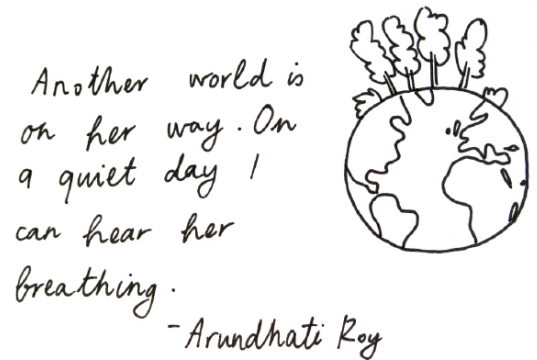 Another world is
on her way. On
a quiet day I
can hear her
breathing.
- Arundhati Roy